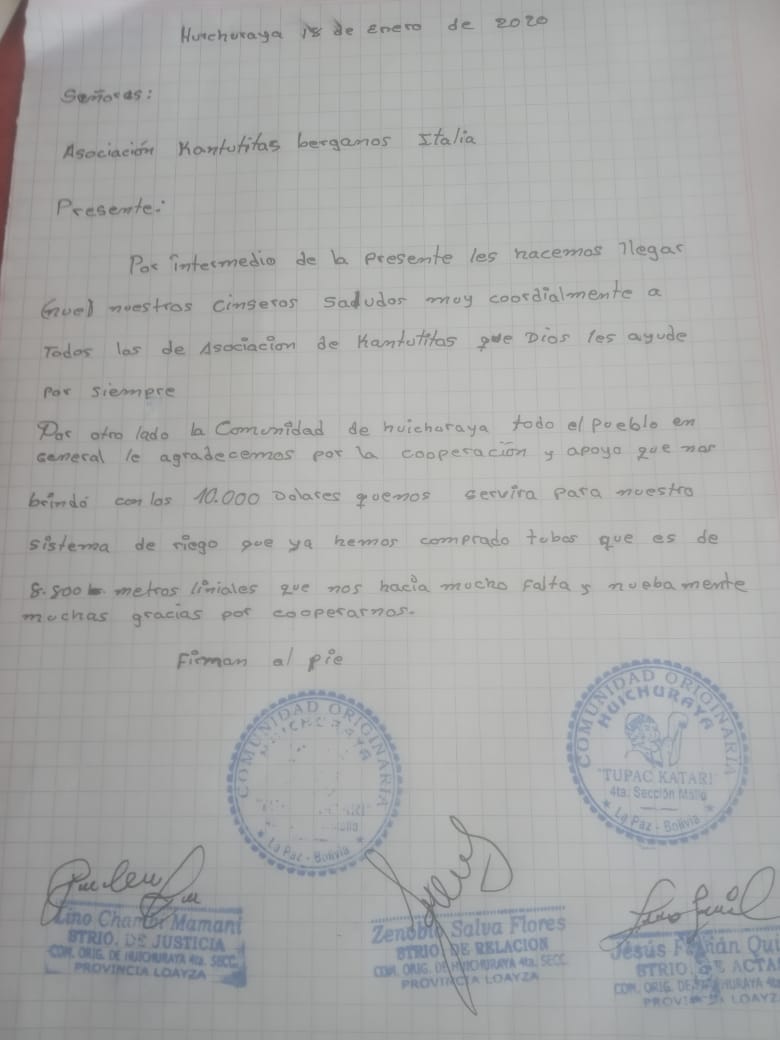 Huichuraya 18 de Enero de 2020
Señoras:
Asociación Kantutitas berganos Italia
Presente:
Por intermedio de la presente les hacemos llegar
nuestros Cinseros Saludos muy coordialmente a
Todos las de Asociacion de Kantutitas que Dios les ayude
por siempre
Por otro lado la Comunidad de huichuraya todo el pueblo en
General le agradecemos por la cooperación y apoyo que nos
brindó con los 10.000 Dolares quenos servira para nuestro
sistema de riego que ya hemos comprado tubos que es de
8.800 metros liniales que nos hacia mucho falta y nuebamente
muchas gracias por cooperarnos.
Firman al pie
COMUNIDAD ORIGINARIA
La Paz - Bolivia
COMUNIDAD ORIGINARIA
HUICHURAYA
"TUPAC KATARI"
4ta. Sección Malla
La Paz - Bolivia
Lino Chambi Mamani
STRIO. DE JUSTICIA
COM. ORIG. DE HUICHURAYA 4ta. SECC.
PROVINCIA LOAYZA
Zenobio Salva Flores
STRIO. DE RELACION
COM. ORIG. DE HUICHURAYA 4ta. SECC.
PROVINCIA LOAYZA
Jesús Qui
STRIO. DE ACTA
COM. ORIG. DE HUICHURAYA 4ta
PROVINCIA LOAYZ